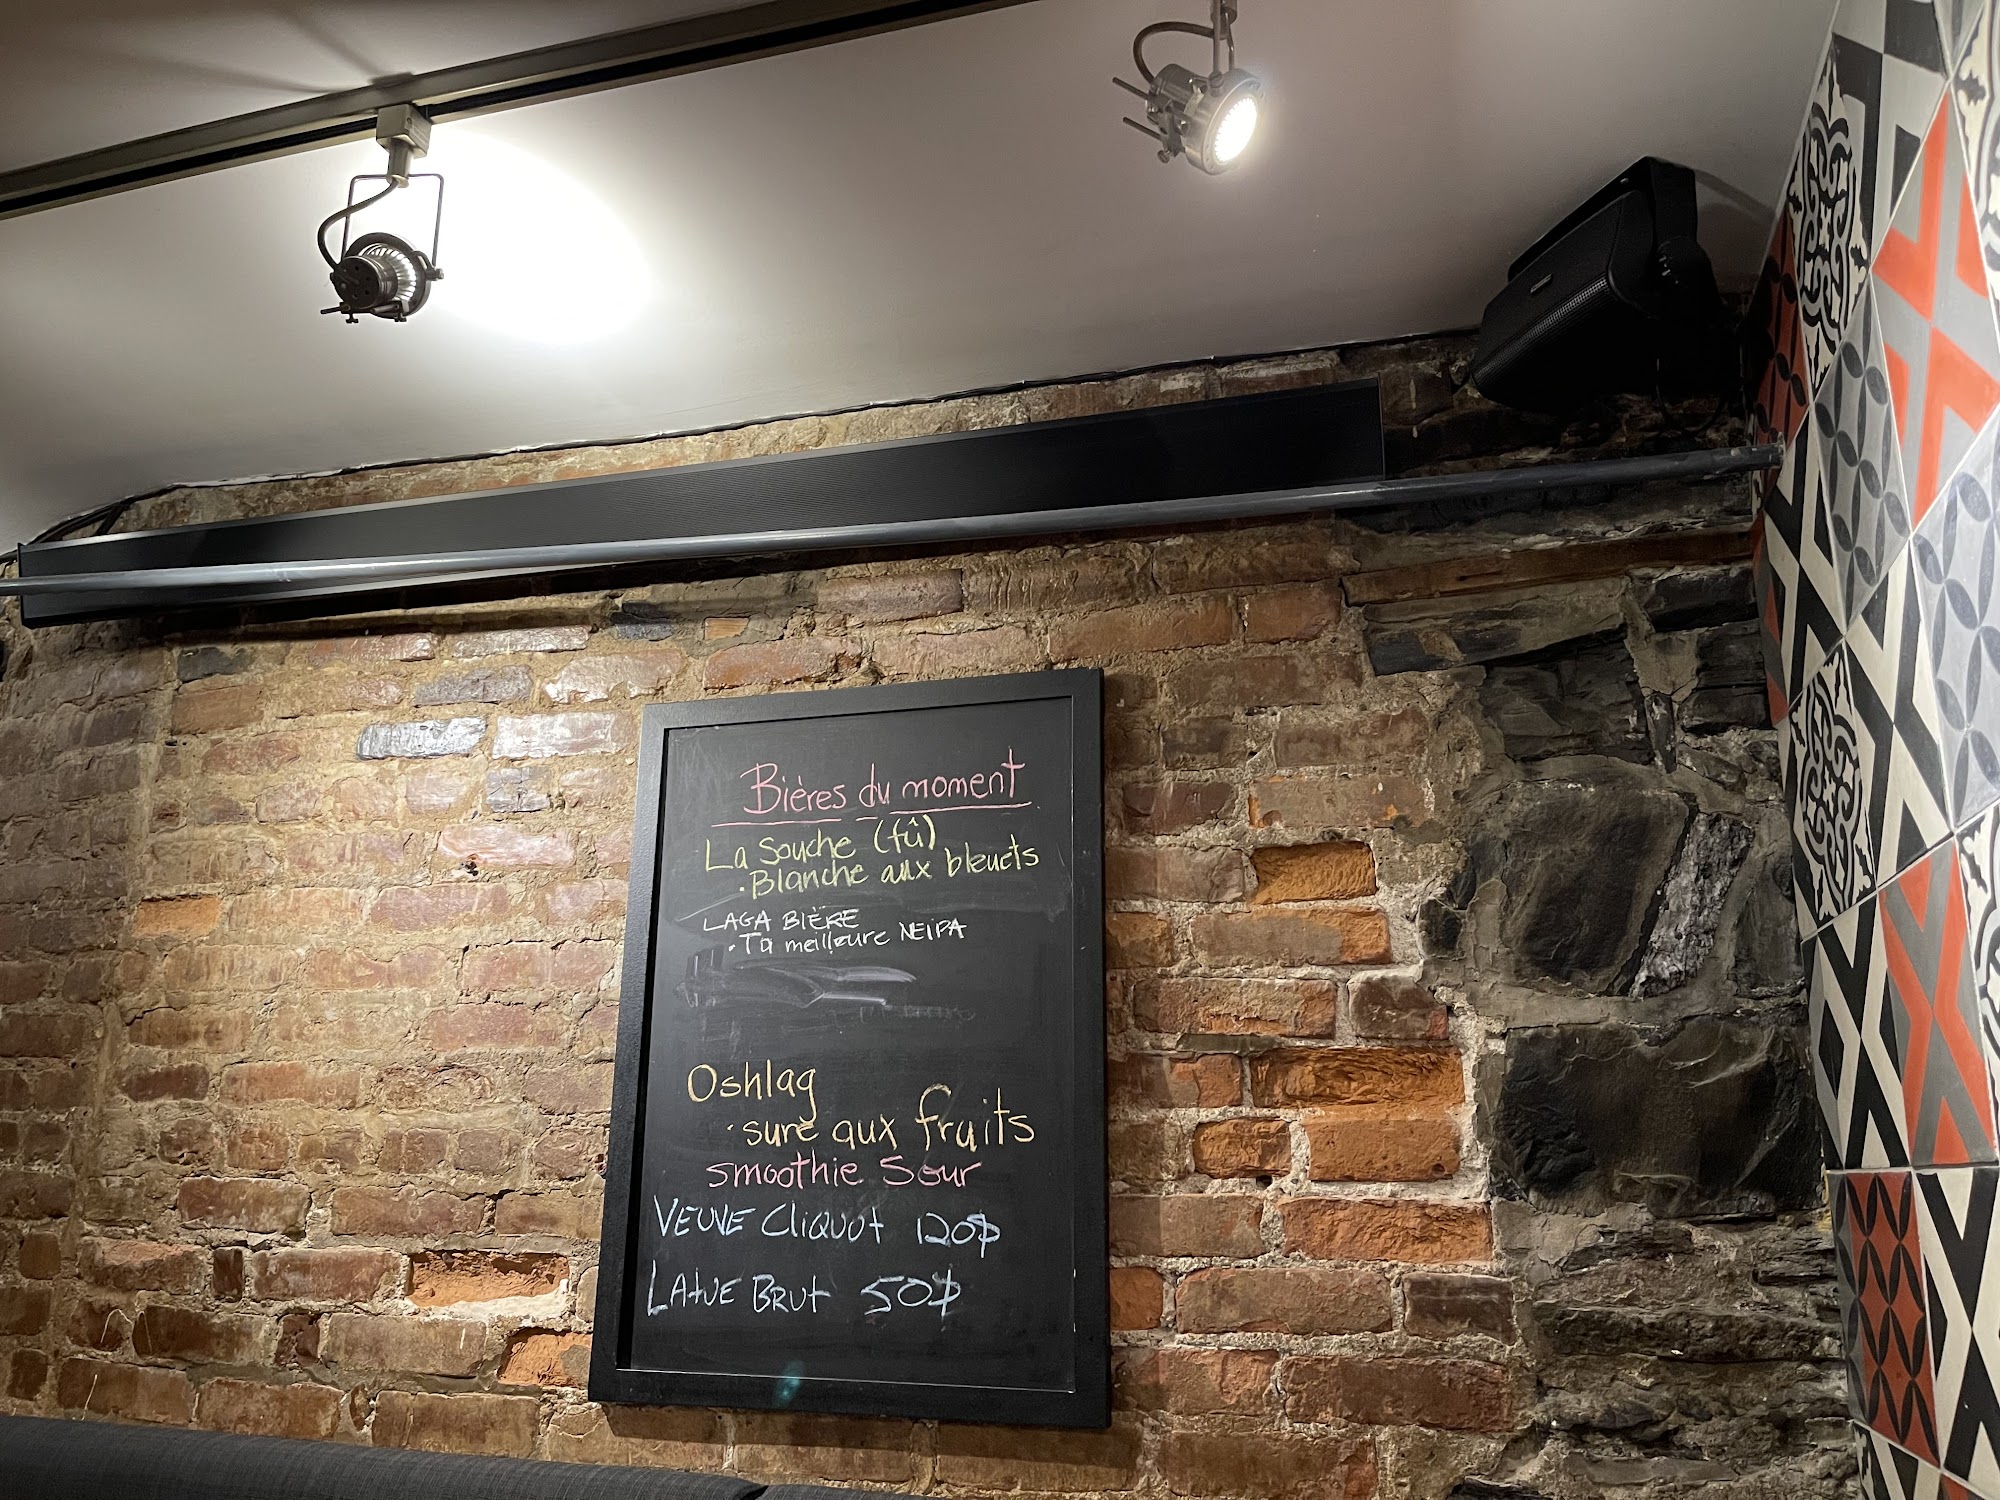 Bières du moment
La Souche (fû)
• Blanche aux bleuets
LAGA BIÈRE
• Ta meilleure NEIPA
Oshlag
• sure aux fruits
smoothie Sour
VEUVE CLIQUOT 120$
LATUE BRUT 50$